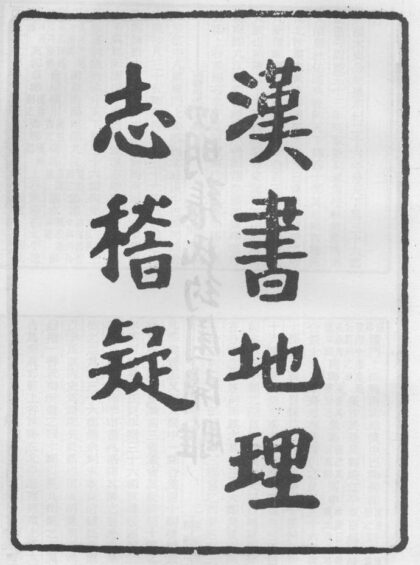 漢書地理
志稽疑